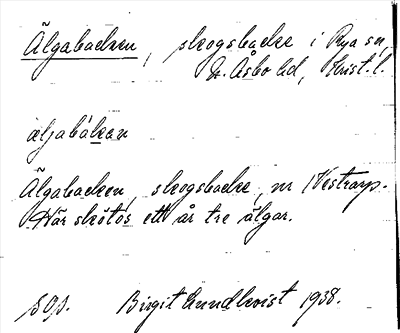 Älgabacken, skogsbacke i Rya sn,
N. Åsbo hd, Krist. l.
äljabákan
Älgabacken, skogsbacke, nr 1 Vestrarp.
Här sköts ett år tre älgar.
Birgit Lundkvist 1938.